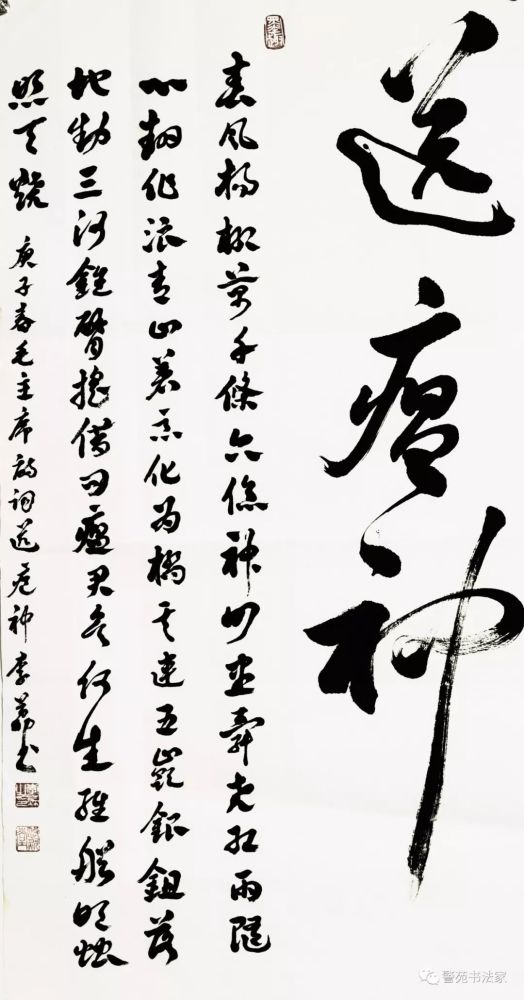 送瘟神
春风杨柳萬千條六億神州尽舜尧红雨随
心翻作浪青山着意化为橋天连五嶺銀鋤落
地動三河鐵臂摇借问瘟君欲何往纸船明烛
照天燒
庚子春毛主席诗词送瘟神 李书
警苑书法家